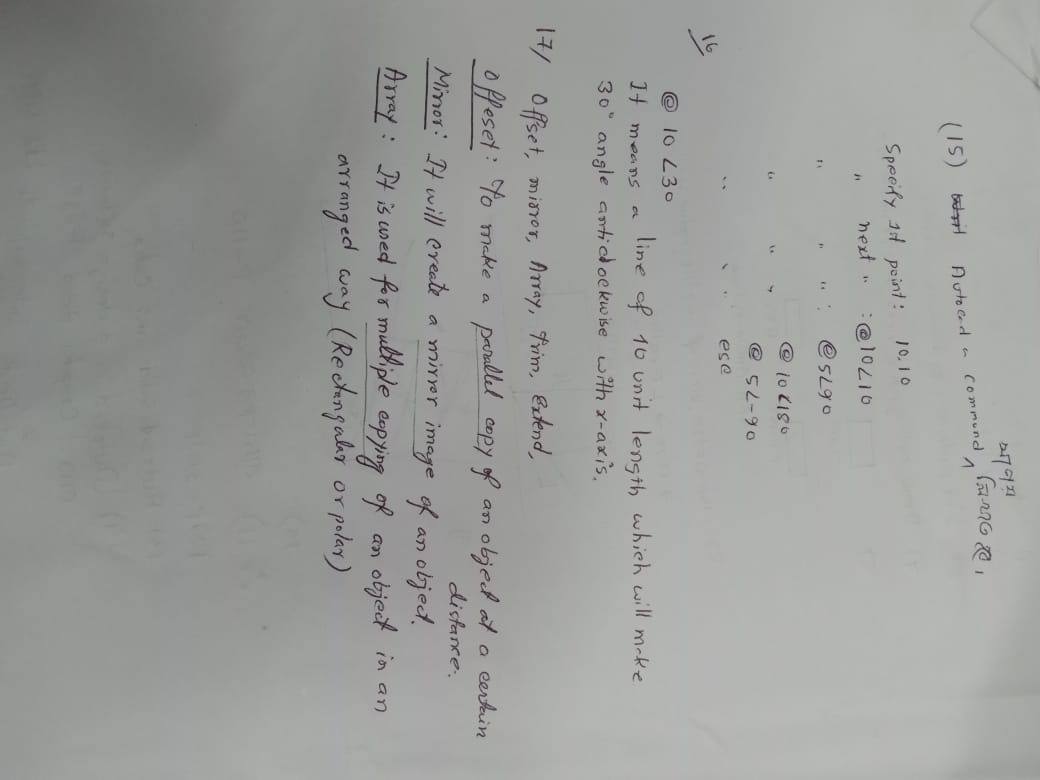 (15) Autocad এ command
Specify 1st point: 10.10
" next " : @10<10
" " " : @5<90
" " " @10<180
" " " @5<-90
ese
16
@ 10 <30
It means a line of 10 unit length which will make
30° angle anticlockwise with x-axis.
17/ Offset, mirror, Array, Trim, Extend,
Offeset: To make a parallel copy of an object at a certain
distance.
Mirror: It will create a mirror image of an object.
Array: It is used for multiple copying of an object in an
arranged way (Rectangular or polar)